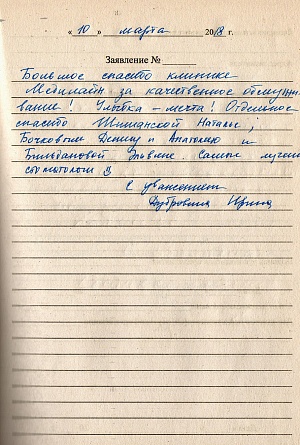 « 10 » марта 2018 г.
Заявление №
Большое спасибо клинике
Медилайн за качественное обслужи-
вание! Улыбка - мечта! Отдельное
спасибо Шиманской Наталье;
Бочковым Денису и Анатолию и
Бильдановой Эльвине. Самые лучшие
стоматологи!
С уважением
Дубровина Ирина